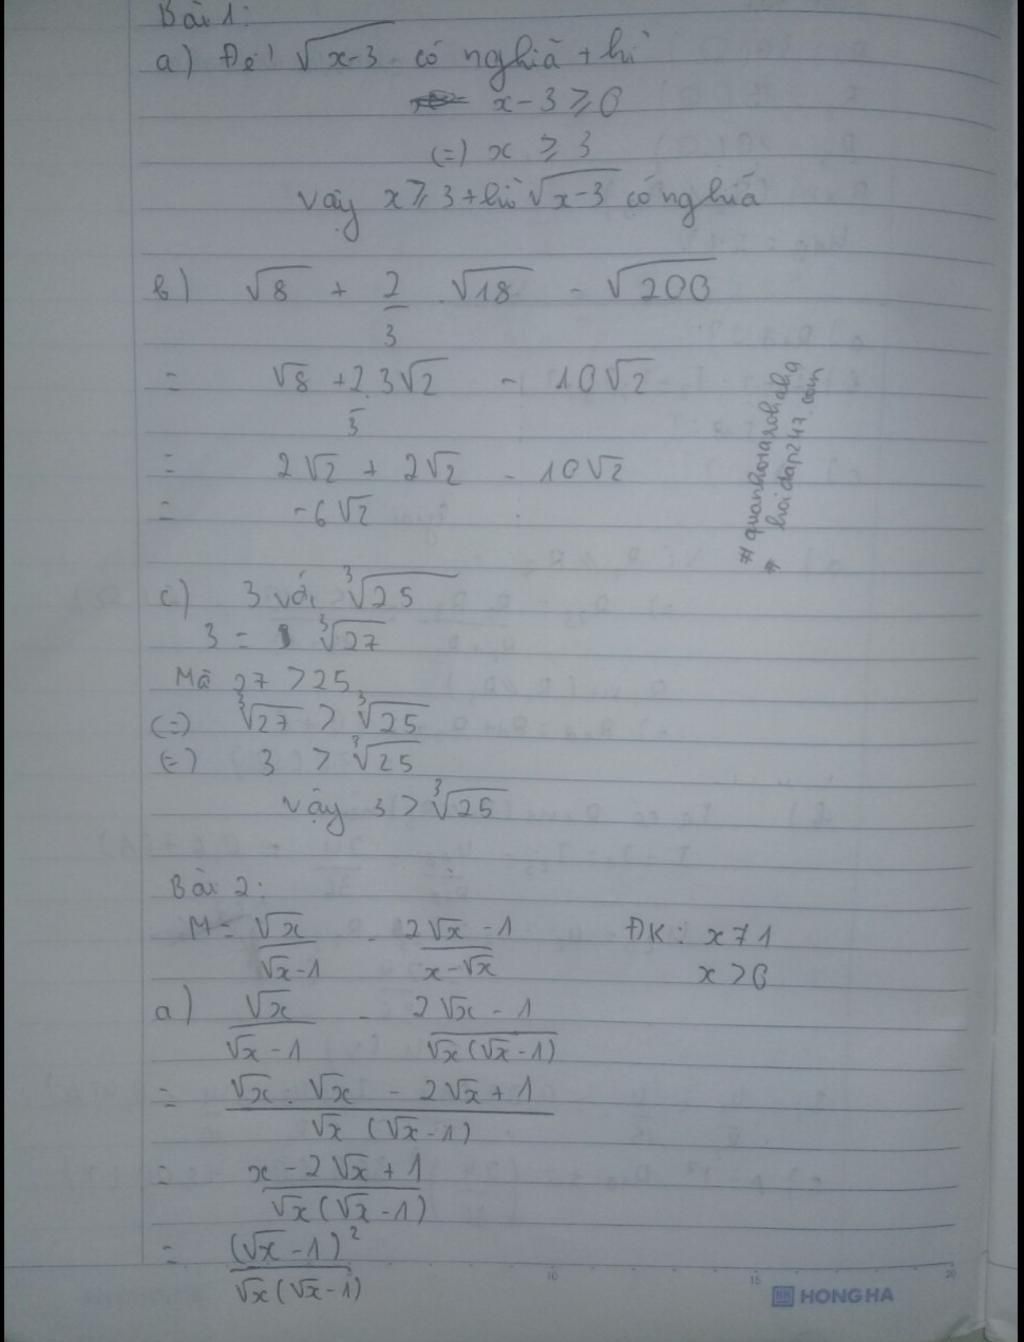 Bài 1:
a) Để √(x-3) có nghĩa thì
x-3 ≥ 0
(=) x ≥ 3
Vậy x ≥ 3 thì √(x-3) có nghĩa
b) √8 + 2/3 . √18 - √200
= √8 + 2.3√2/3 - 10√2
= 2√2 + 2√2 - 10√2
= -6√2
#quanhoanrohabg
# hoidap247.com
c) 3 với ∛25
3 = ∛27
Mà 27 > 25
(=) ∛27 > ∛25
(=) 3 > ∛25
Vậy 3 > ∛25
Bài 2:
M = √x/(√x-1) - (2√x-1)/(x-√x) ĐK: x ≠ 1
x > 0
a) √x/(√x-1) - (2√x-1)/(√x(√x-1))
= (√x.√x - 2√x+1)/(√x(√x-1))
= (x-2√x+1)/(√x(√x-1))
= (√x-1)²/(√x(√x-1))
10 15 20
HONG HA